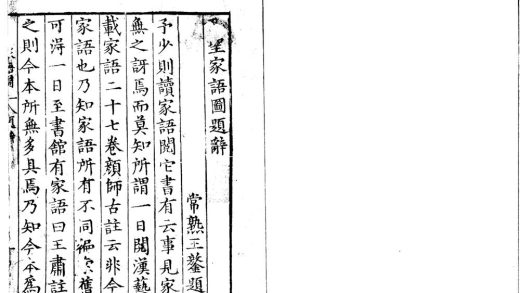 聖家語圖題辭
常熟王鏊題
予少則讀家語閱它書有云事見家
無之訝焉而莫知所謂一日閱漢藝
載家語二十七卷顏師古註云非今
家語也乃知家語所有不同徧
可淂一日至書館有家語曰王肅註
之則今本所無多具焉乃知今本為